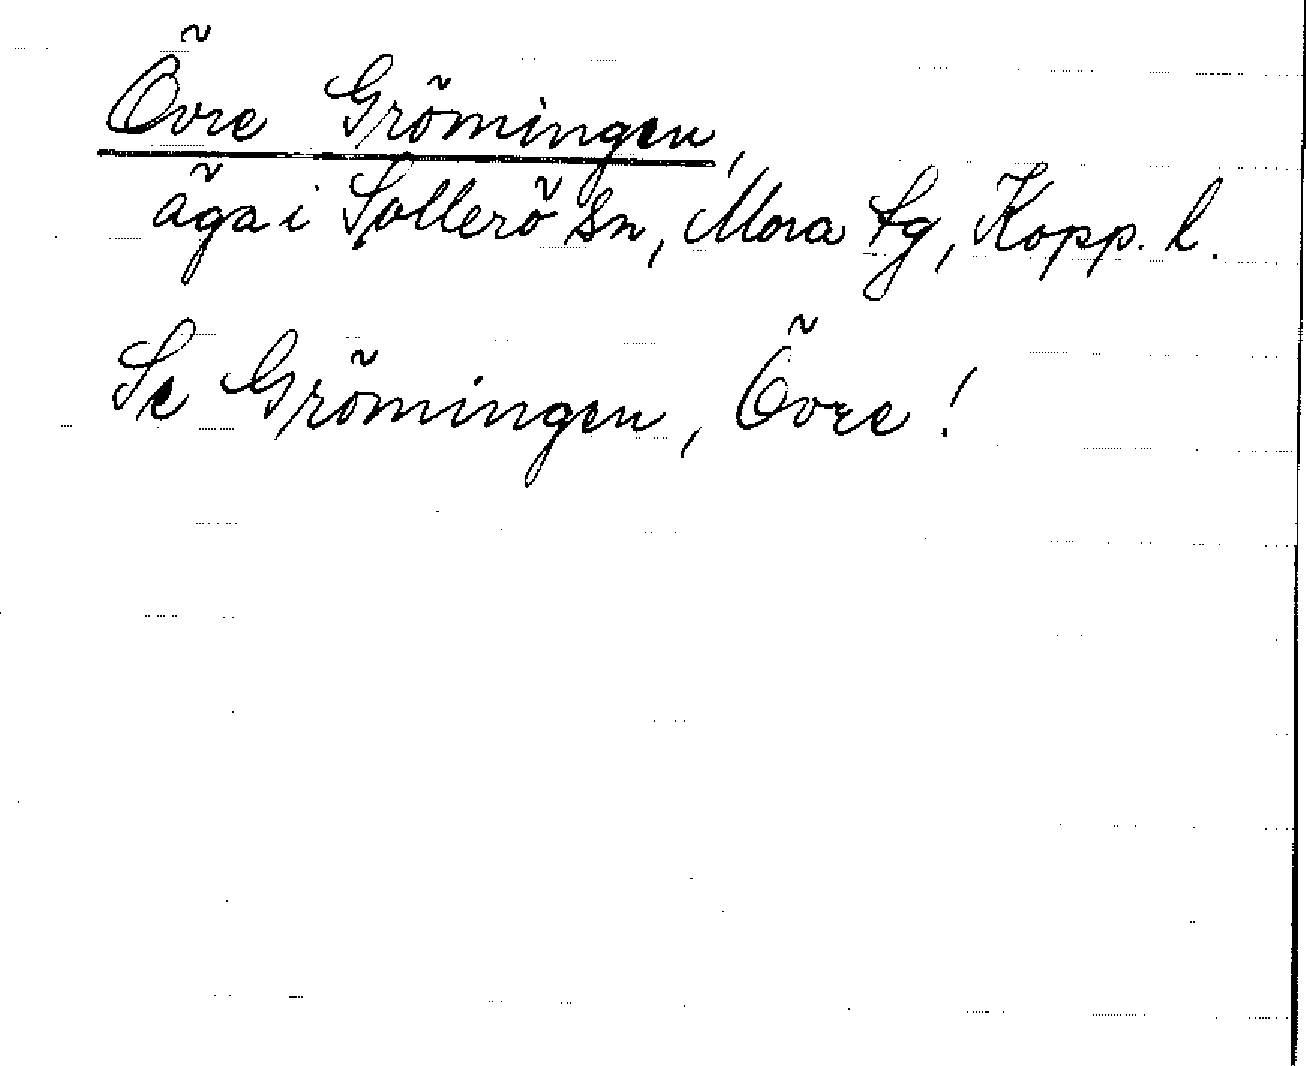 Övre Gröningen,
äga i Sollerö sn, Mora tg, Kopp. l.
Se Gröningen, Övre!